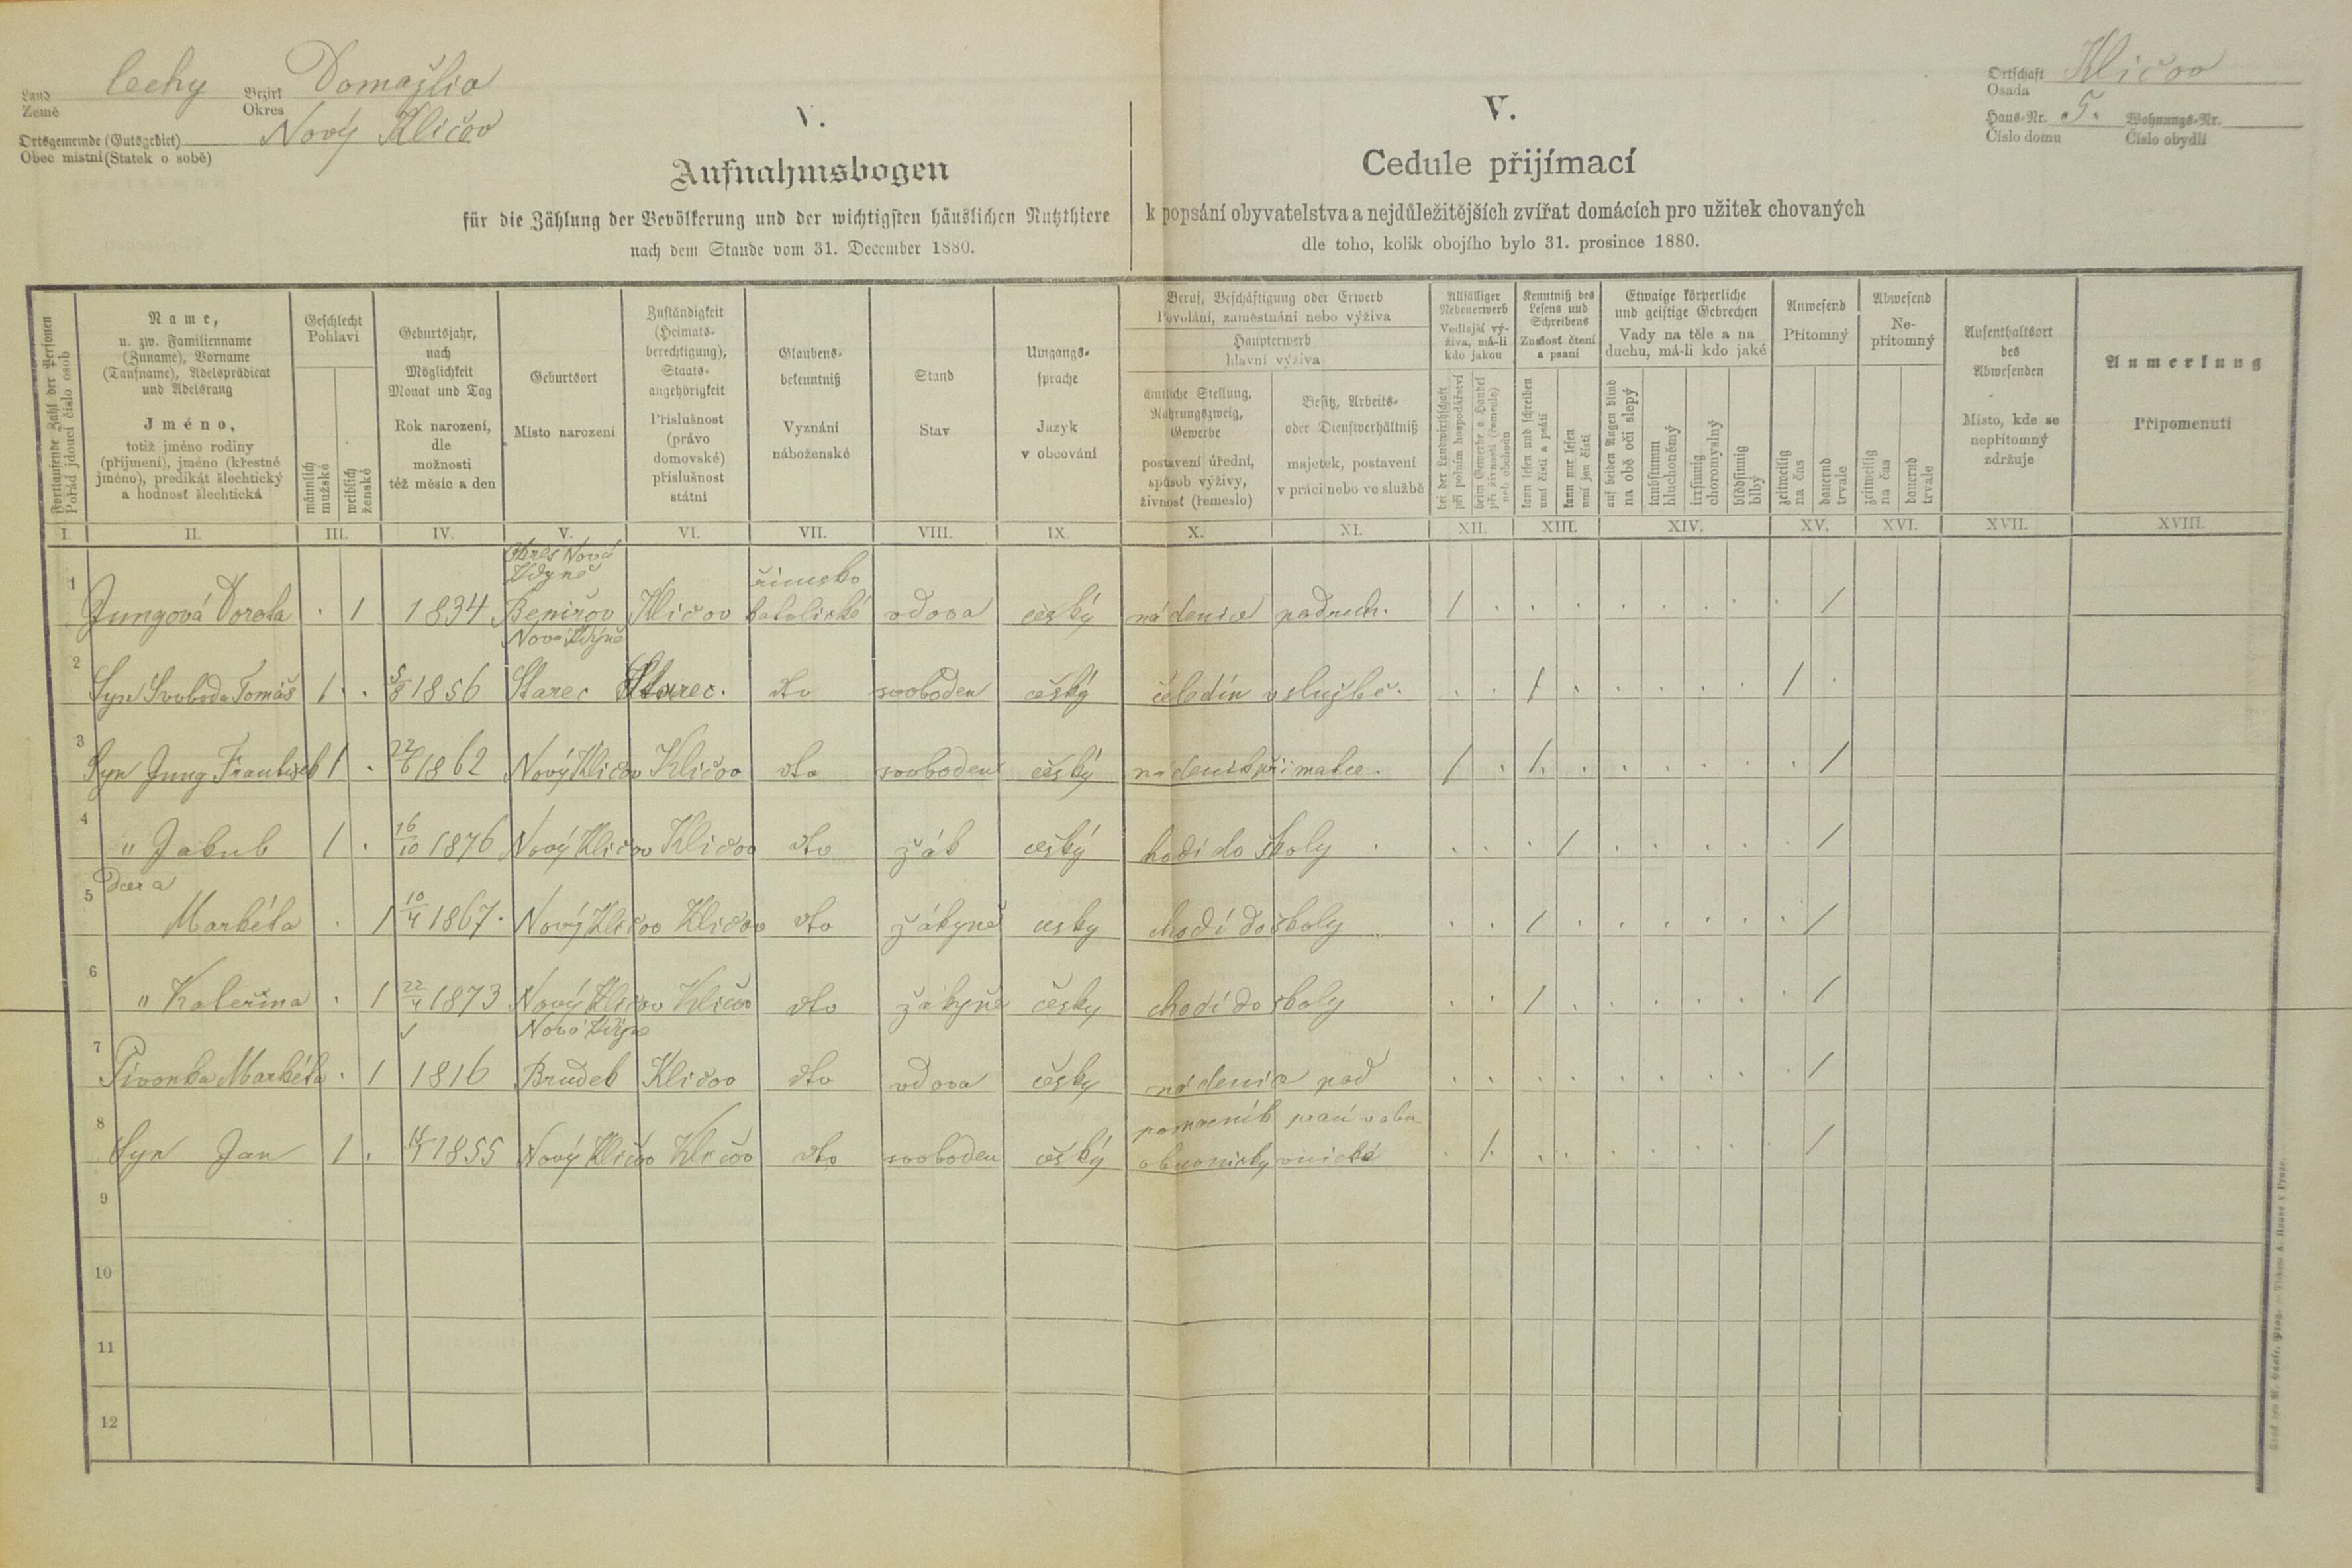 Land Země Čechy Bezirk Okres Domažlice
Ortsgemeinde (Gutsgebiet) Obec místní (Statek o sobě) Nový Kličov
Ortschaft Osada Kličov
Haus-Nr. Číslo domu 5. Wohnungs-Nr. Číslo obydlí
V.
Aufnahmsbogen
für die Zählung der Bevölkerung und der wichtigsten häuslichen Nutzthiere
nach dem Stande vom 31. December 1880.
V.
Cedule přijímací
k popsání obyvatelstva a nejdůležitějších zvířat domácích pro užitek chovaných
dle toho, kolik obojího bylo 31. prosince 1880.
Fortlaufende Zahl der Personen
Pořád jdoucí číslo osob
Name,
u. zw. Familienname
(Zuname), Vorname
(Taufname), Adelsprädicat
und Adelsrang
Jméno,
totiž jméno rodiny
(příjmení), jméno (křestné
jméno), predikát šlechtický
a hodnosť šlechtická
Geschlecht
Pohlaví
männlich
mužské
weiblich
ženské
Geburtsjahr,
nach
Möglichkeit
Monat und Tag
Rok narození,
dle
možnosti
též měsíc a den
Geburtsort
Místo narození
Zuständigkeit
(Heimats-
berechtigung),
Staats-
angehörigkeit
Příslušnost
(právo
domovské)
příslušnost
státní
Glaubens-
bekenntniß
Vyznání
náboženské
Stand
Stav
Umgangs-
sprache
Jazyk
v obcování
Beruf, Beschäftigung oder Erwerb
Povolání, zaměstnání nebo výživa
Haupterwerb
hlavní výživa
ämtliche Stellung,
Nahrungszweig,
Gewerbe
postavení úřední,
spůsob výživy,
živnost (řemeslo)
Besitz, Arbeits-
oder Dienstverhältniß
majetek, postavení
v práci nebo ve službě
Allfälliger
Nebenerwerb
Vedlejší vý-
živa, má-li
kdo jakou
bei der Landwirthschaft
při polním hospodářství
beim Gewerbe o. Handel
při živnosti (řemeslo)
neb obchodu
Kenntniß des
Lesens und
Schreibens
Znalosť čtení
a psaní
kann lesen und schreiben
umí čísti a psáti
kann nur lesen
umí jen čísti
Etwaige körperliche
und geistige Gebrechen
Vady na těle a na
duchu, má-li kdo jaké
auf beiden Augen blind
na obě oči slepý
taubstumm
hluchoněmý
irrsinnig
choromyslný
blödsinnig
blbý
Anwesend
Přítomný
zeitweilig
na čas
dauernd
trvale
Abwesend
Ne-
přítomný
zeitweilig
na čas
dauernd
trvale
Aufenthaltsort
des
Abwesenden
Místo, kde se
nepřítomný
zdržuje
Anmerkung
Připomenutí
I. II. III. IV. V. VI. VII. VIII. IX. X. XI. XII. XIII. XIV. XV. XVI. XVII. XVIII.
Okres Nová
Kdyně
římsko
1 Jungová Dorota . 1 1834 Benižov Kličov katolické vdova český nádenice podruh. / . . . . . . . . /
Nová Kdyně
2 Syn Svoboda Tomáš 1 . 5/8 1856 Starec Starec. dto svoboden český čeledín v službě. . . / . . . . . / .
3 Syn Jung František 1 . 22/6 1862 Nový Kličov Kličov dto svoboden český nádeník při matce. / . / . . . . . . /
4 " Jakub 1 . 16/10 1876 Nový Kličov Kličov dto žák český hodí do školy . . . . / . . . . . /
Dcera
5 Markéta . 1 10/4 1867. Nový Kličov Kličov dto žákyně cesky chodí do školy . . / . . . . . . /
6 " Kateřina . 1 22/4 1873 Nový Kličov Kličov dto žákyně česky chodí do skoly . . / . . . . . . /
Nová Kdyne
7 Pivonka Markéta . 1 1816 Brudek Kličov dto vdova česky nádenice pod . . . . . . . . . /
pomocník
8 Syn Jan 1 . 1855 Nový Kličov Kličov dto svoboden český obuvnický . / . . . . . . . /
9
10
11
12